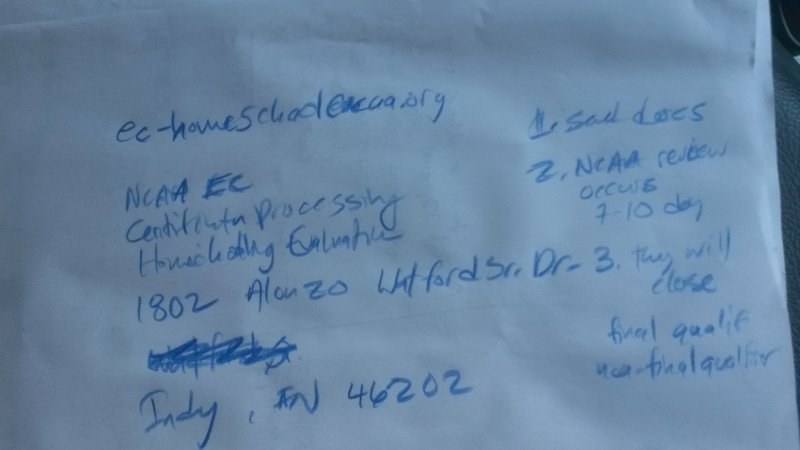 ec-homeschool@ncaa.org
NCAA EC
Certification Processing
Homeschooling Evaluation
1802 Alonzo Watford Sr. Dr.
Indy, IN 46202
1. send docs
2. NCAA review
occurs
7-10 day
3. they will
close
final qualif
non-final qualifier